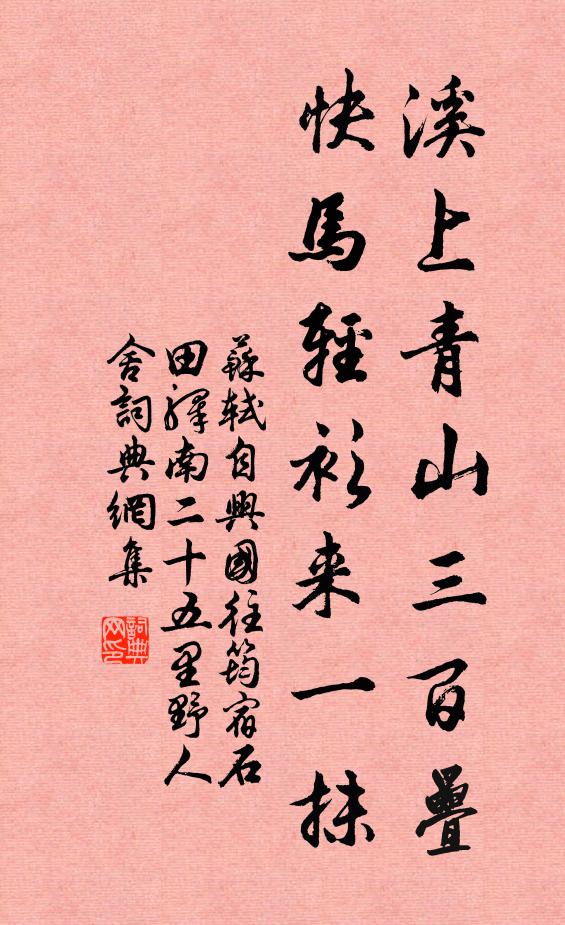 溪上青山三百疊
快馬輕衫来一抹
蘇軾自興國往筠宿石
田驛南二十五里野人
舍詞典網集
詞典
网印